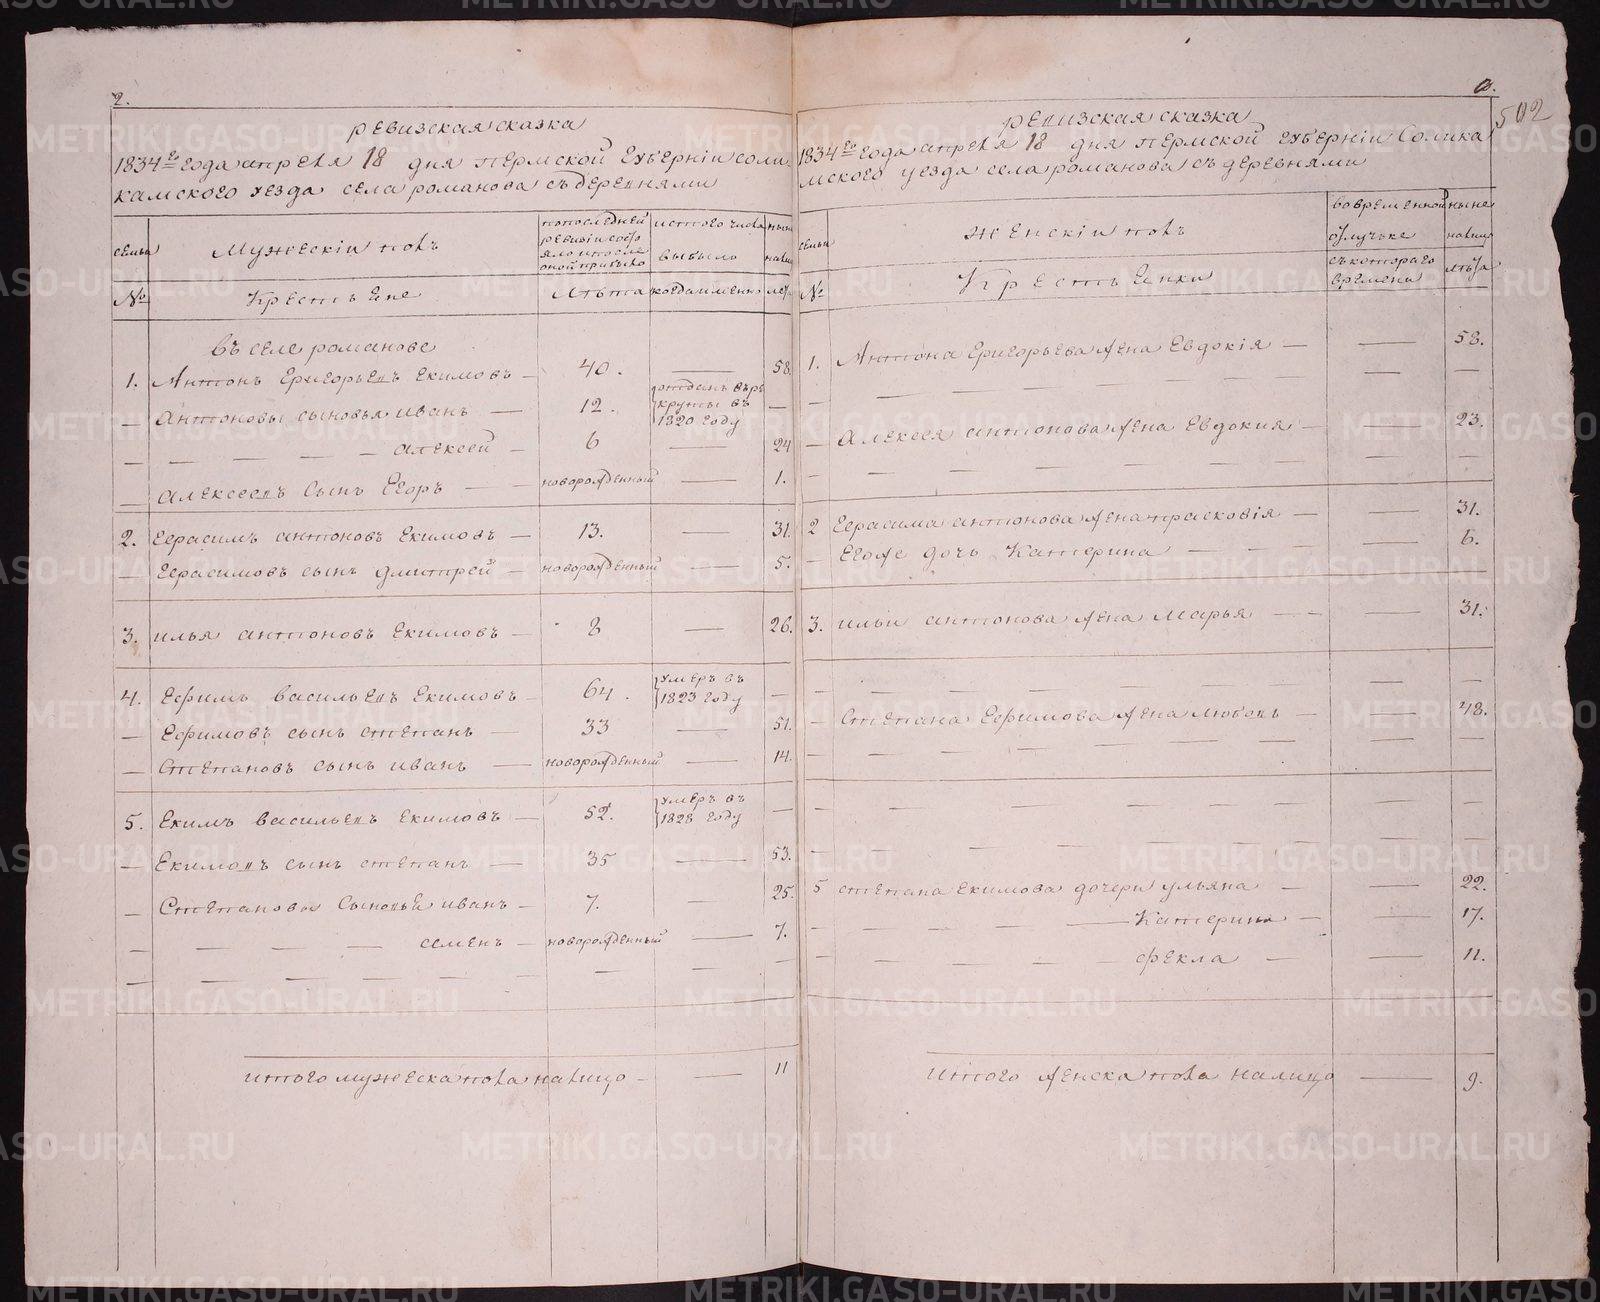 2.
ревизская сказка
1834го года апреля 18 дня пермской губерніи соли
камского уезда села романова съ деревнями
семьи
Мужескіи полъ
попоследней
ревизіи состо
яло ипосле
оной прибыло
изтого числа
выбыло
ныне
налицо
№
Крестьяне
Лѣта
когда именно
лета
въ селе романове
1. Антонъ Григорьевъ Екимовъ — 40. — 58.
— антоновы сыновья иванъ — 12. отданъ въре
круты въ
1820 году —
— — — — — алексеи — 6 — 24
— алексеевъ сынъ Егоръ — новорожденный — 1.
2. Герасимъ антоновъ Екимовъ — 13. — 31.
— Герасимовъ сынъ дмитреи — новорожденный — 5.
3. илья антоновъ Екимовъ — 8 — 26.
4. Ефимъ васильевъ Екимовъ — 64. умеръ въ
1823 году —
— Ефимовъ сынъ степанъ — 33 — 51.
— Степановъ сынъ иванъ — новорожденный — 14.
5. Екимъ васильевъ Екимовъ — 52. умеръ въ
1828 году —
— Екимовъ сынъ степанъ — 35 — 53.
— Степановы Сыновьи иванъ — 7. — 25.
— — — — — семенъ — новорожденный — 7.
— — — — — — — — —
итого мужеска пола налицо — — 11
3.
502
ревизская сказка
1834го года апреля 18 дня пермской губерніи Солика
мского уезда села романова съ деревнями
семьи
женскіи полъ
вовременной
отлучьке
ныне
налицо
№
Крестьянки
съкотораго
времени
лѣта
1. Антона Григорьева жена Евдокія — — 58.
— — — — — — — — —
— алексея антонова жена Евдокия — — 23.
— — — — — — — — —
2 Герасима антонова жена прасковія — — 31.
— Егоже дочь Катерина — — 6.
3. ильи антонова жена Марья — — — 31.
— — — — — — — —
— Степана Ефимова жена любовь — — 48.
— — — — — — — — —
— — — — — — — — —
— — — — — — — — —
5 степана екимова дочери ульяна — — 22.
— — — — — Катерина — — 17.
— — — — — фекла — — 11.
итого женска пола налицо — 9.
METRIKI.GASO-URAL.RU